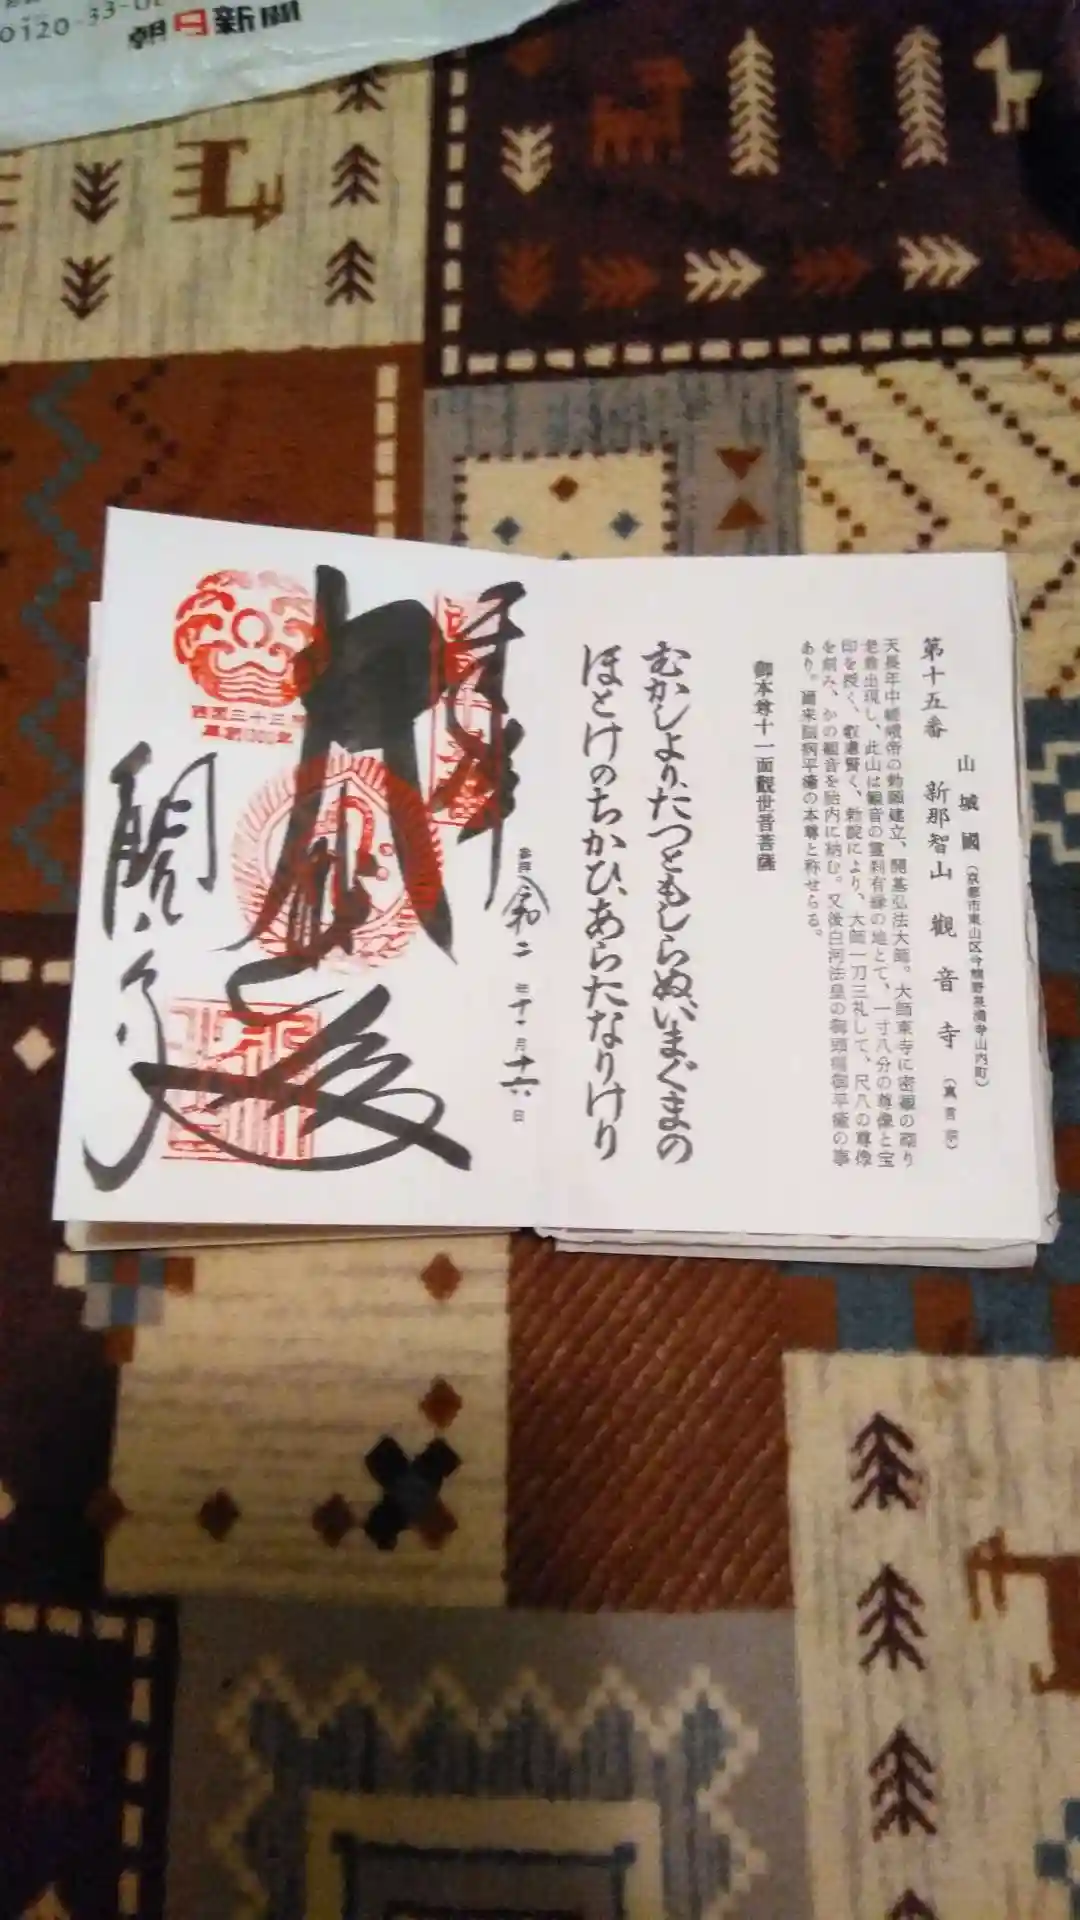 0120-33-0
朝日新聞
山城國(京都市東山区今熊野泉涌寺山内町)
第十五番 新那智山 觀音寺 (真言宗)
天長年中嵯峨帝の勅願建立、開基弘法大師。大師東寺に密観の砌り
老翁出現し、此山は観音の霊刹有縁の地とて、一寸八分の尊像と宝
印を授く、叡慮賢く、勅諚により、大師一刀三礼して、尺八の尊像
を刻み、かの観音を胎内に納む。又後白河法皇の御頭痛御平癒の事
あり。爾来脳病平癒の本尊と称せらる。
御本尊十一面觀世音菩薩
むかしより、たつともしらぬ、いまぐまの
ほとけのちかひ、あらたなりけり
令和二年十一月十六日
奉拝
西国三十三所
草創1300年